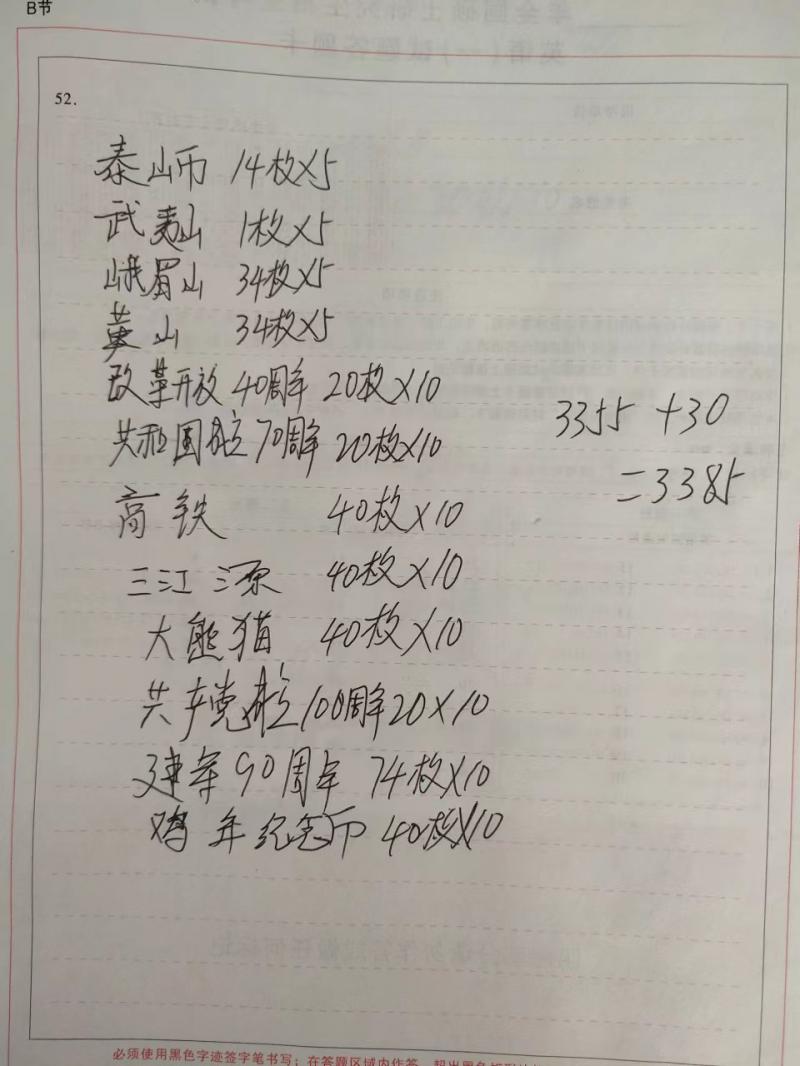 B节
52.
泰山币 14枚X5
武夷山 1枚X5
峨眉山 34枚X5
黄山 34枚X5
改革开放40周年 20枚X10
共和国成立70周年 20枚X10
3355 +30
=3385
高铁 40枚X10
三江源 40枚X10
大熊猫 40枚X10
共产党成立100周年20X10
建军90周年 74枚X10
鸡年纪念币 40枚X10
必须使用黑色字迹签字笔书写；在答题区域内作答，超出黑色矩形